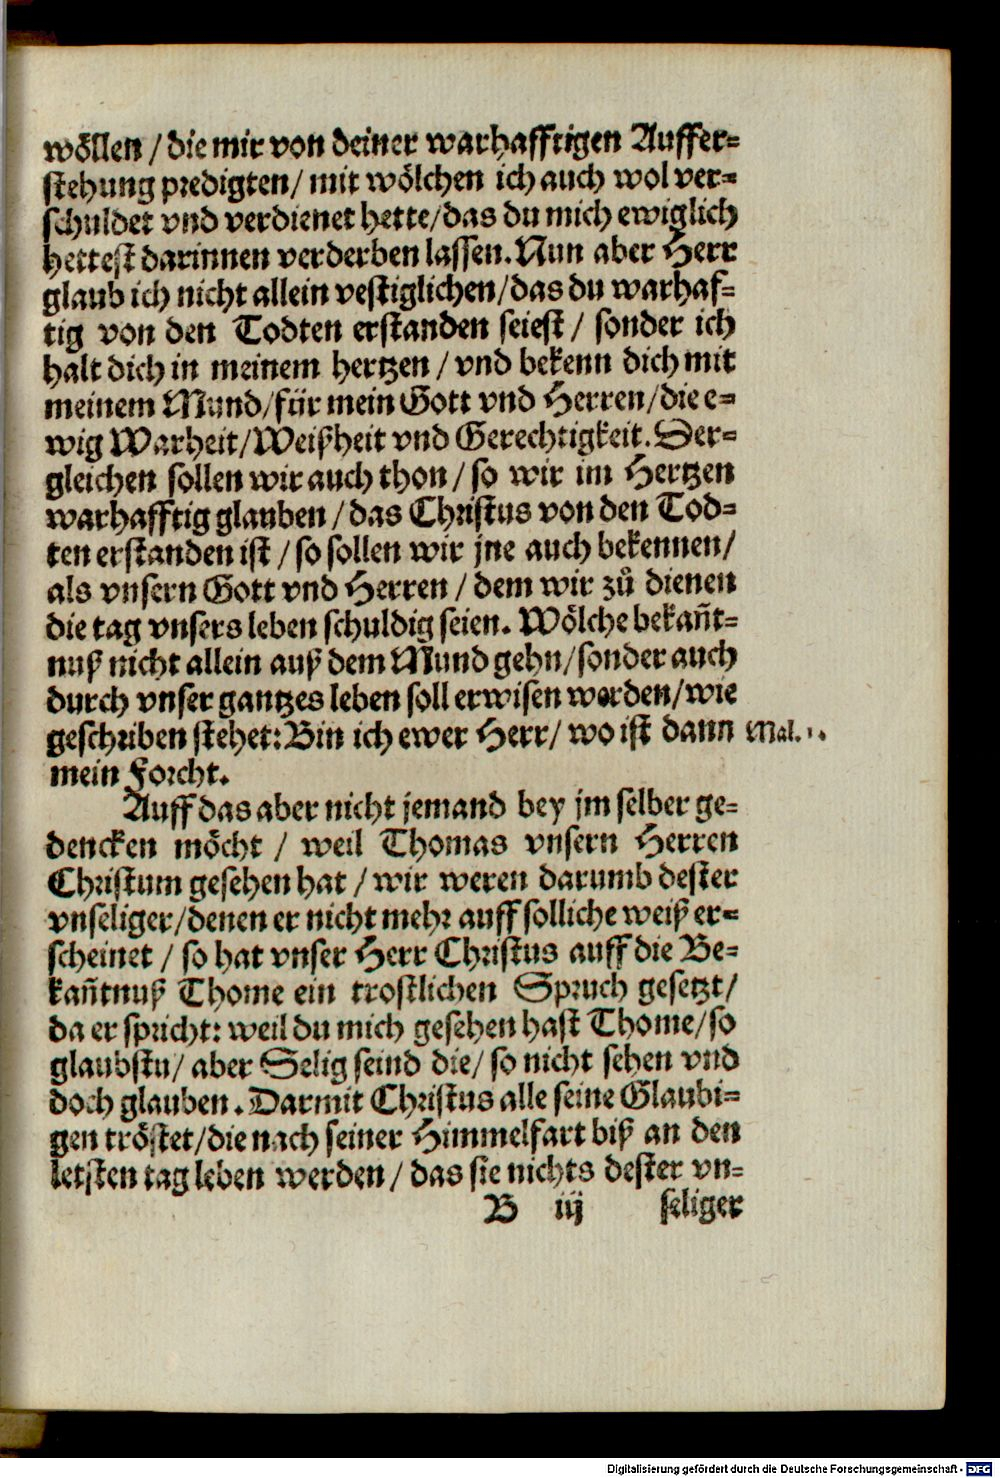 wöllen / die mir von deiner warhafftigen Auffer-
stehung predigten / mit wölchen ich auch wol ver-
schuldet vnd verdienet hette / das du mich ewiglich
hettest darinnen verderben lassen. Nun aber Herr
glaub ich nicht allein vestiglichen / das du warhaf-
tig von den Todten erstanden seiest / sonder ich
halt dich in meinem hertzen / vnd bekenn dich mit
meinem Mund / für mein Gott vnd Herren / die e-
wig Warheit / Weißheit vnd Gerechtigkeit. Der-
gleichen sollen wir auch thon / so wir im Hertzen
warhafftig glauben / das Christus von den Tod-
ten erstanden ist / so sollen wir jne auch bekennen /
als vnsern Gott vnd Herren / dem wir zů dienen
die tag vnsers leben schuldig seien. Wölche bekañt-
nuß nicht allein auß dem Mund gehn / sonder auch
durch vnser gantzes leben soll erwisen werden / wie
geschriben stehet: Bin ich ewer Herr / wo ist dann Mal. 1.
mein Forcht.
Auff das aber nicht jemand bey jm selber ge-
dencken möcht / weil Thomas vnsern Herren
Christum gesehen hat / wir weren darumb dester
vnseliger / denen er nicht mehr auff solliche weiß er-
scheinet / so hat vnser Herr Christus auff die Be-
kañtnuß Thome ein trostlichen Spruch gesetzt /
da er spricht: weil du mich gesehen hast Thome / so
glaubstu / aber Selig seind die / so nicht sehen vnd
doch glauben. Darmit Christus alle seine Glaubi-
gen tröstet / die nach seiner Himmelfart biß an den
letsten tag leben werden / das sie nichts dester vn-
B iij seliger
Digitalisierung gefördert durch die Deutsche Forschungsgemeinschaft - DFG